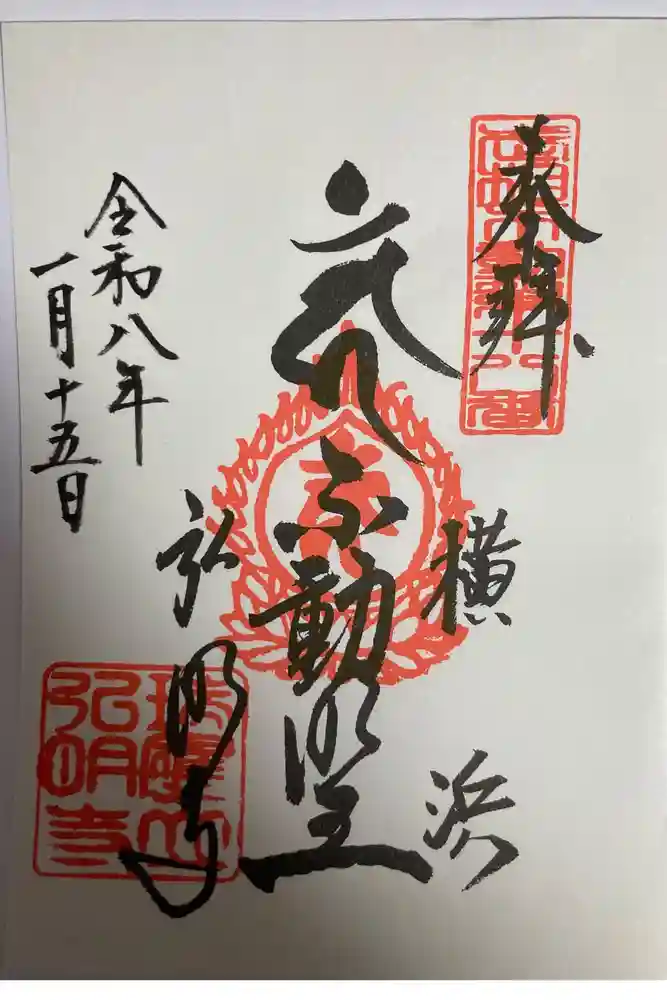 奉拝
横浜
不動明王
弘明寺
瑞應山
弘明寺
令和八年
一月十五日